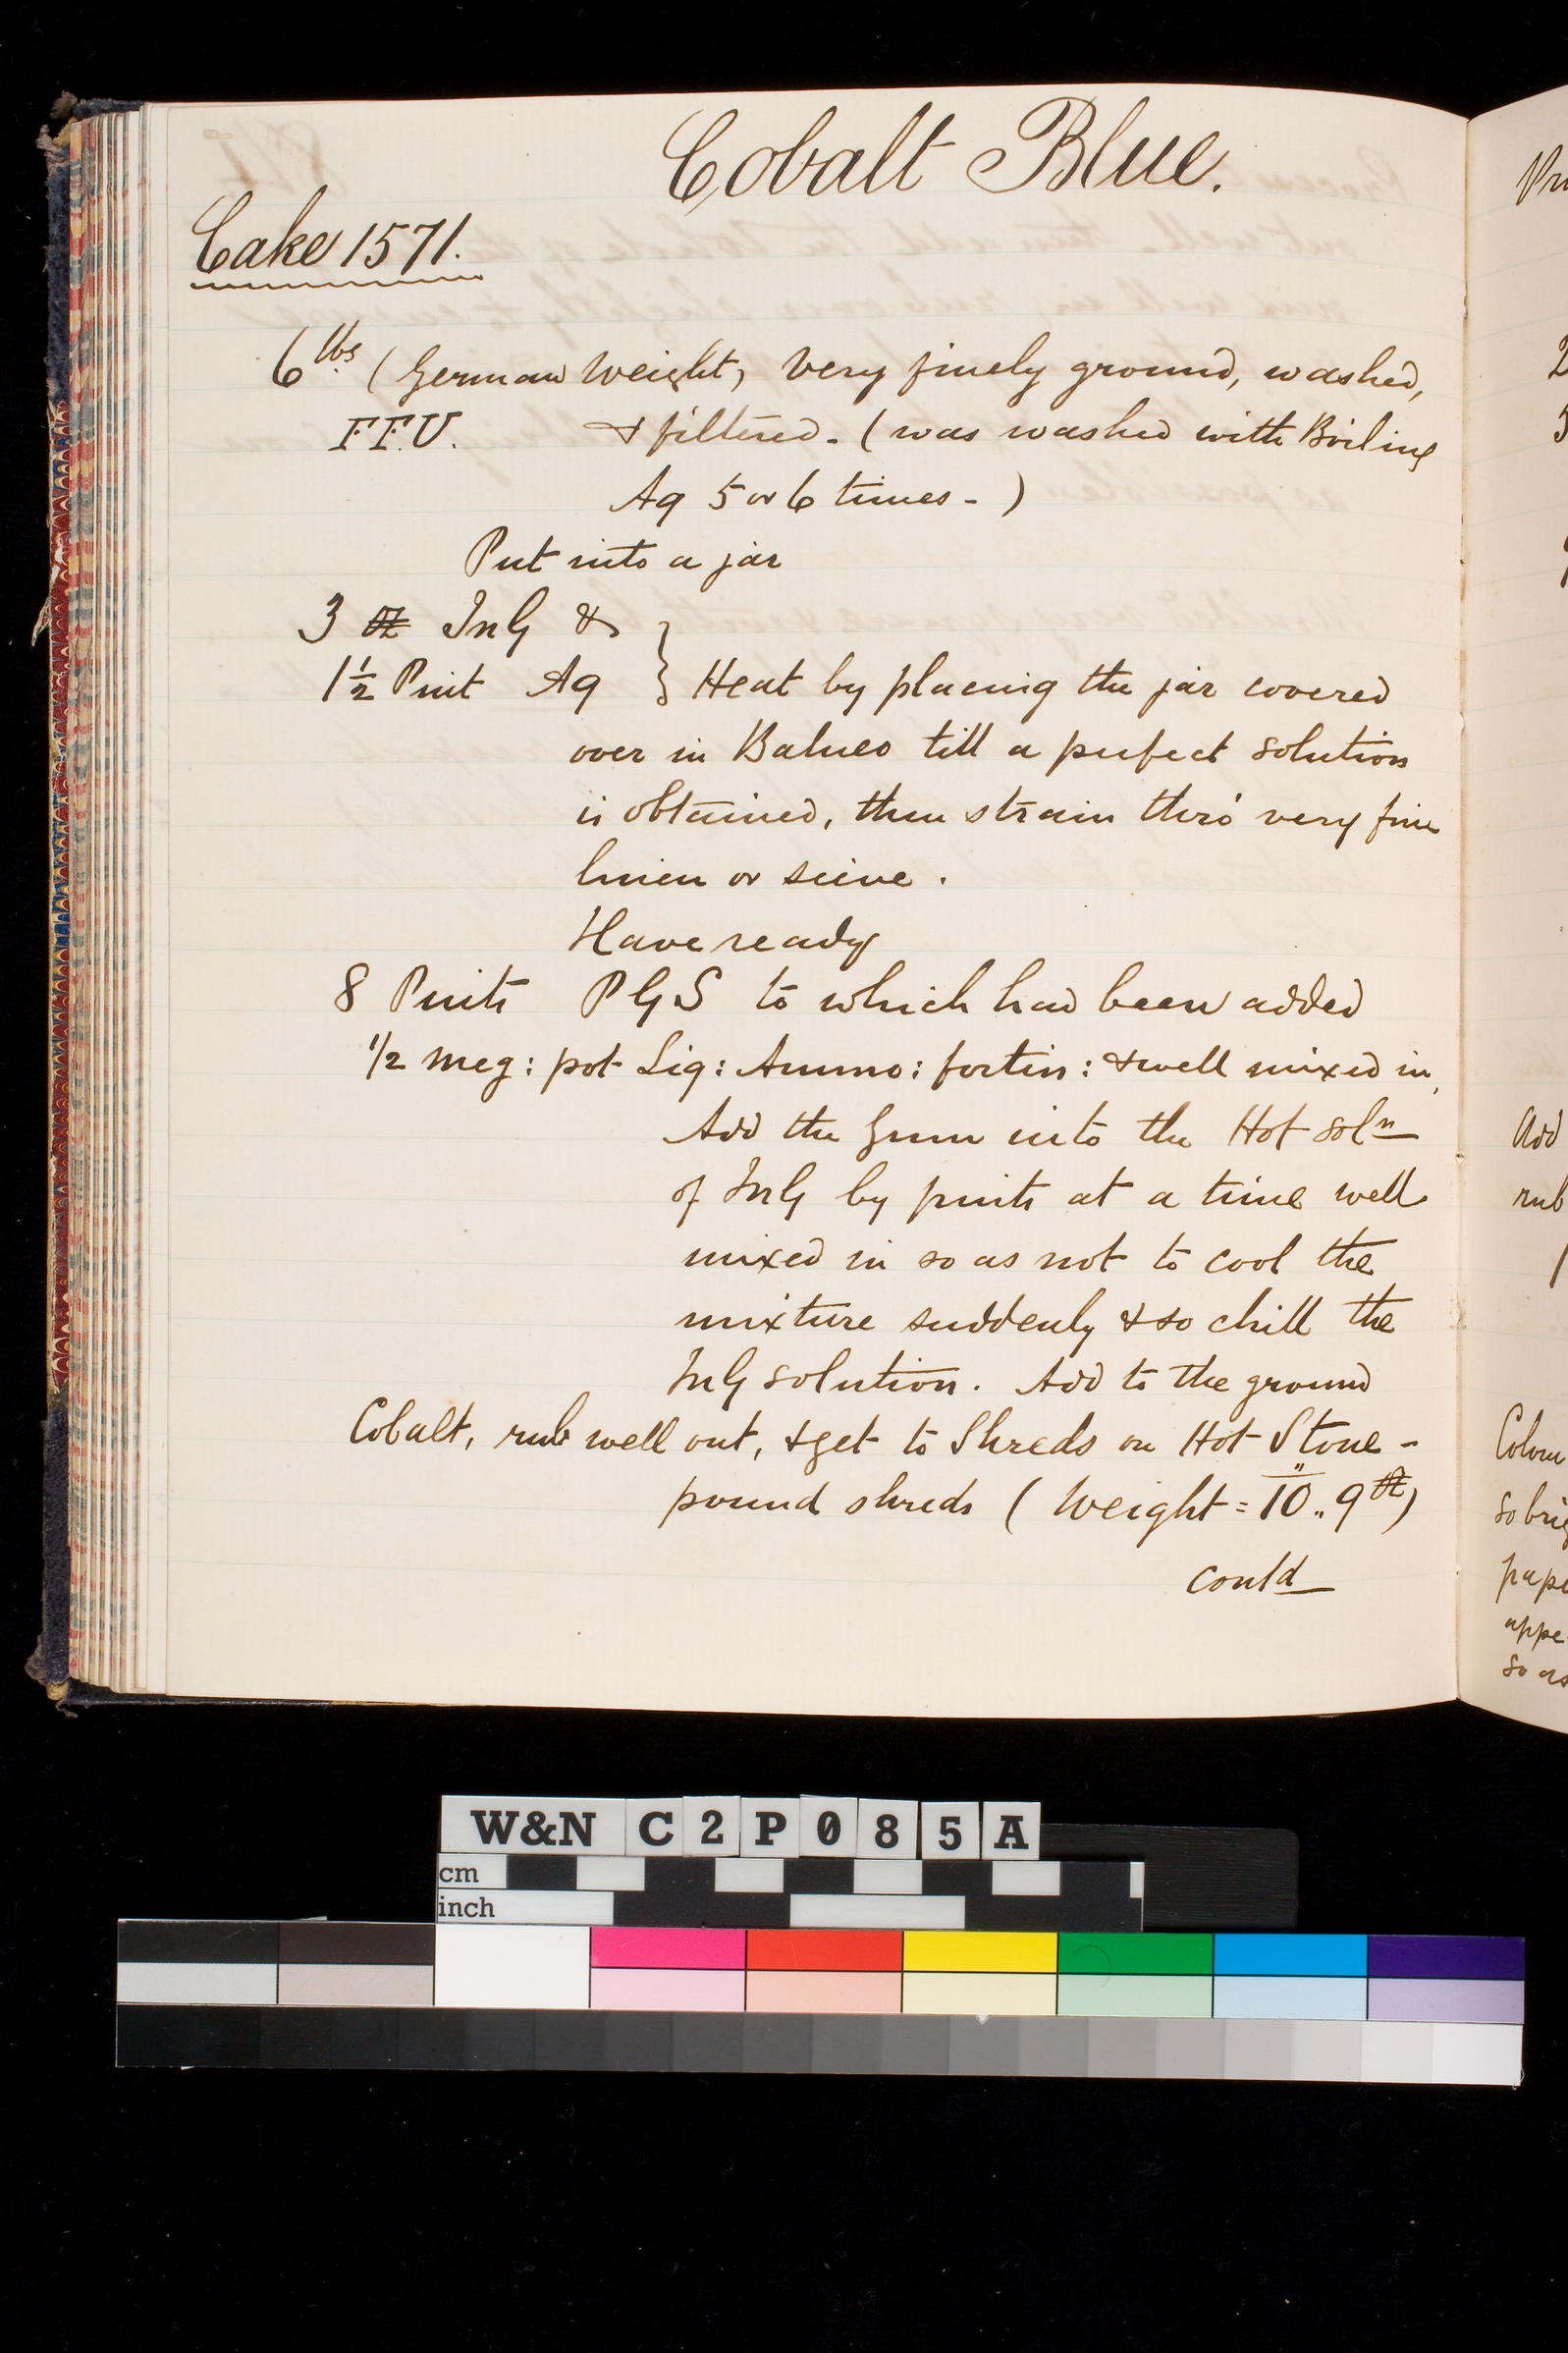 Cobalt Blue.
Cake 1571.
6 lbs (German Weight, very finely ground, washed,
F.F.U. & filtered. (was washed with Boiling
Aq 5 or 6 times - )
Put into a jar
3 oz InG &
1½ Pint Aq } Heat by placing the jar covered
over in Balneo till a perfect solution
is obtained, then strain thro' very fine
linen or seive.
Have ready
8 Pints PGS to which had been added
1/2 meg: pot Liq: Ammo: fortis: & well mixed in,
Add the Gum into the Hot soln
of InG by pints at a time well
mixed in so as not to cool the
mixture suddenly & so chill the
InG solution. Add to the ground
Cobalt, rub well out, & get to Shreds on Hot Stone -
pound shreds ( Weight = 10 .. 9 oz)
contd
2
Add
rub
Colour
so brig
pape
appe
so as
W&N C2P085A
cm
inch